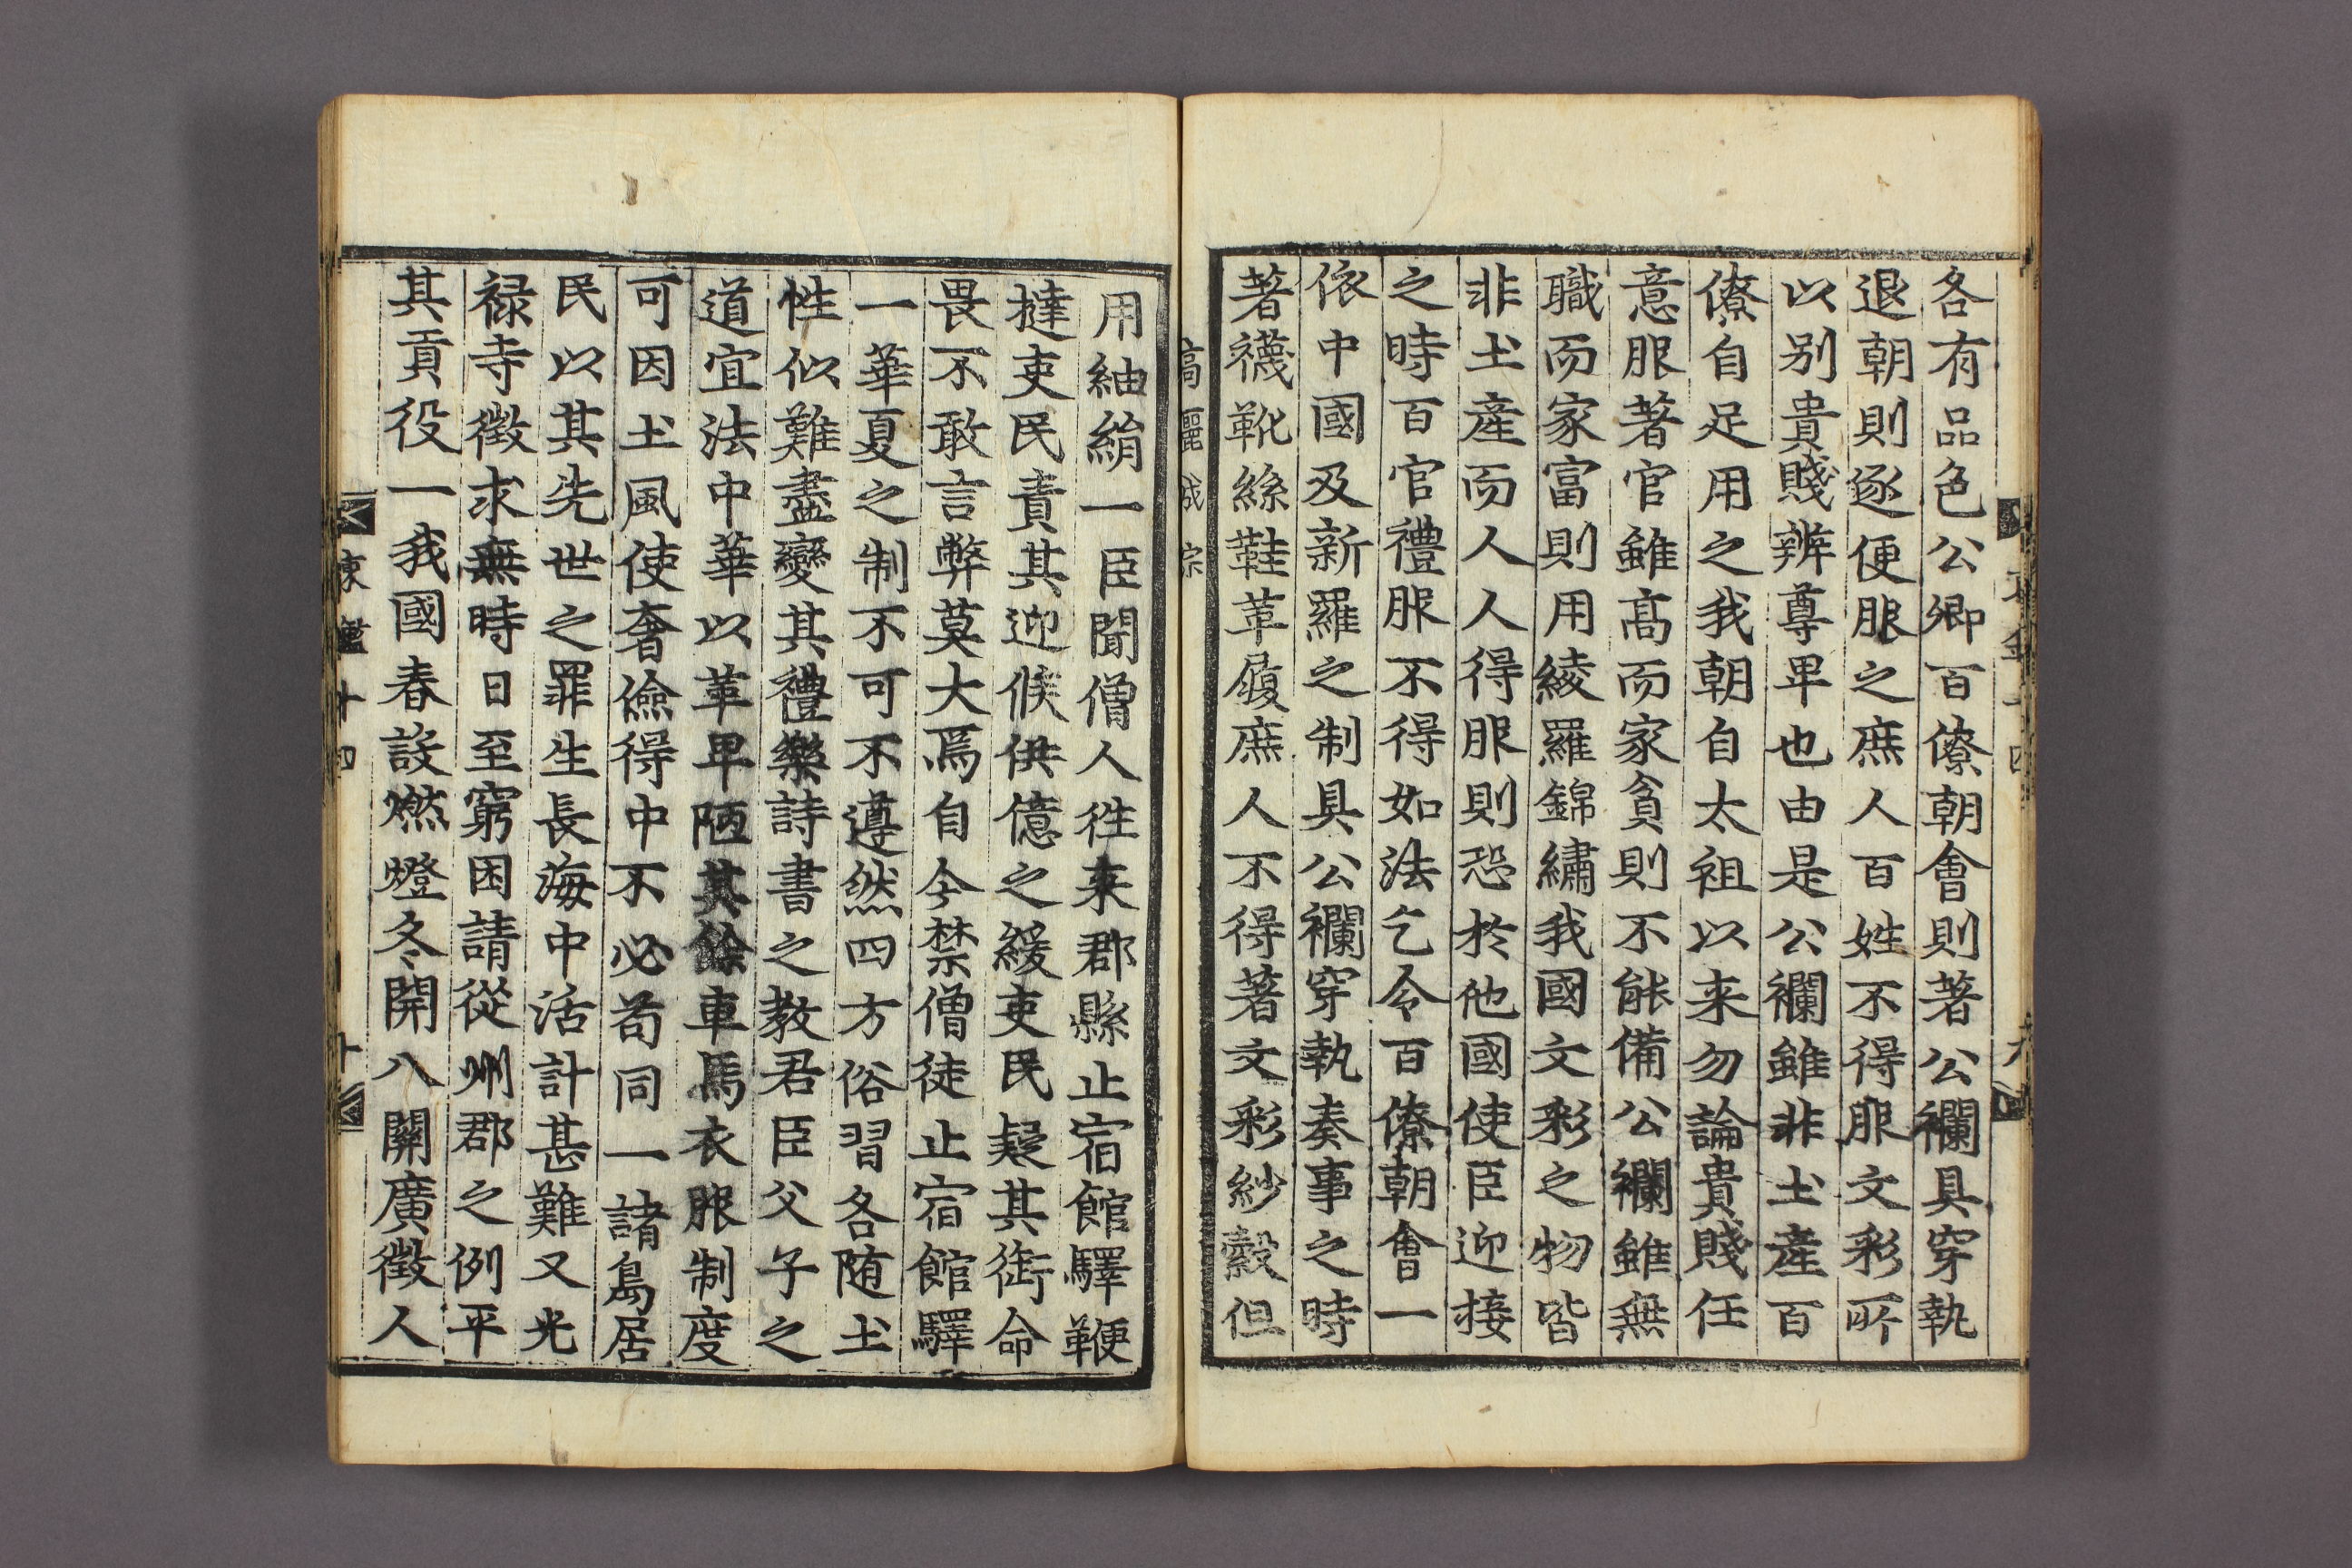 各有品色公卿百僚朝會則著公襴具穿執
退朝則逐便服之庶人百姓不得服文彩所
以别貴賤辨尊卑也由是公襴雖非土產百
僚自足用之我朝自太祖以来勿論貴賤任
意服著官雖髙而家貧則不能備公襴雖無
職而家富則用綾羅錦繡我國文彩之物皆
非土產而人人得服則恐於他國使臣迎接
之時百官禮服不得如法乞令百僚朝會一
依中國及新羅之制具公襴穿執奏事之時
著襪靴絲鞋革履庶人不得著文彩紗縠但
高麗成宗
用紬絹一臣聞僧人徃来郡縣止宿館驛鞭
撻吏民責其迎候供億之緩吏民疑其銜命
畏不敢言弊莫大焉自今禁僧徒止宿館驛
一華夏之制不可不遵然四方俗習各随土
性似難盡變其禮樂詩書之教君臣父子之
道宜法中華以革卑陋其餘車馬衣服制度
可因土風使奢儉得中不必苟同一諸島居
民以其先世之罪生長海中活計甚難又光
禄寺徵求無時日至窮困請從州郡之例平
其貢役一我國春設燃燈冬開八關廣徵人
十四
十